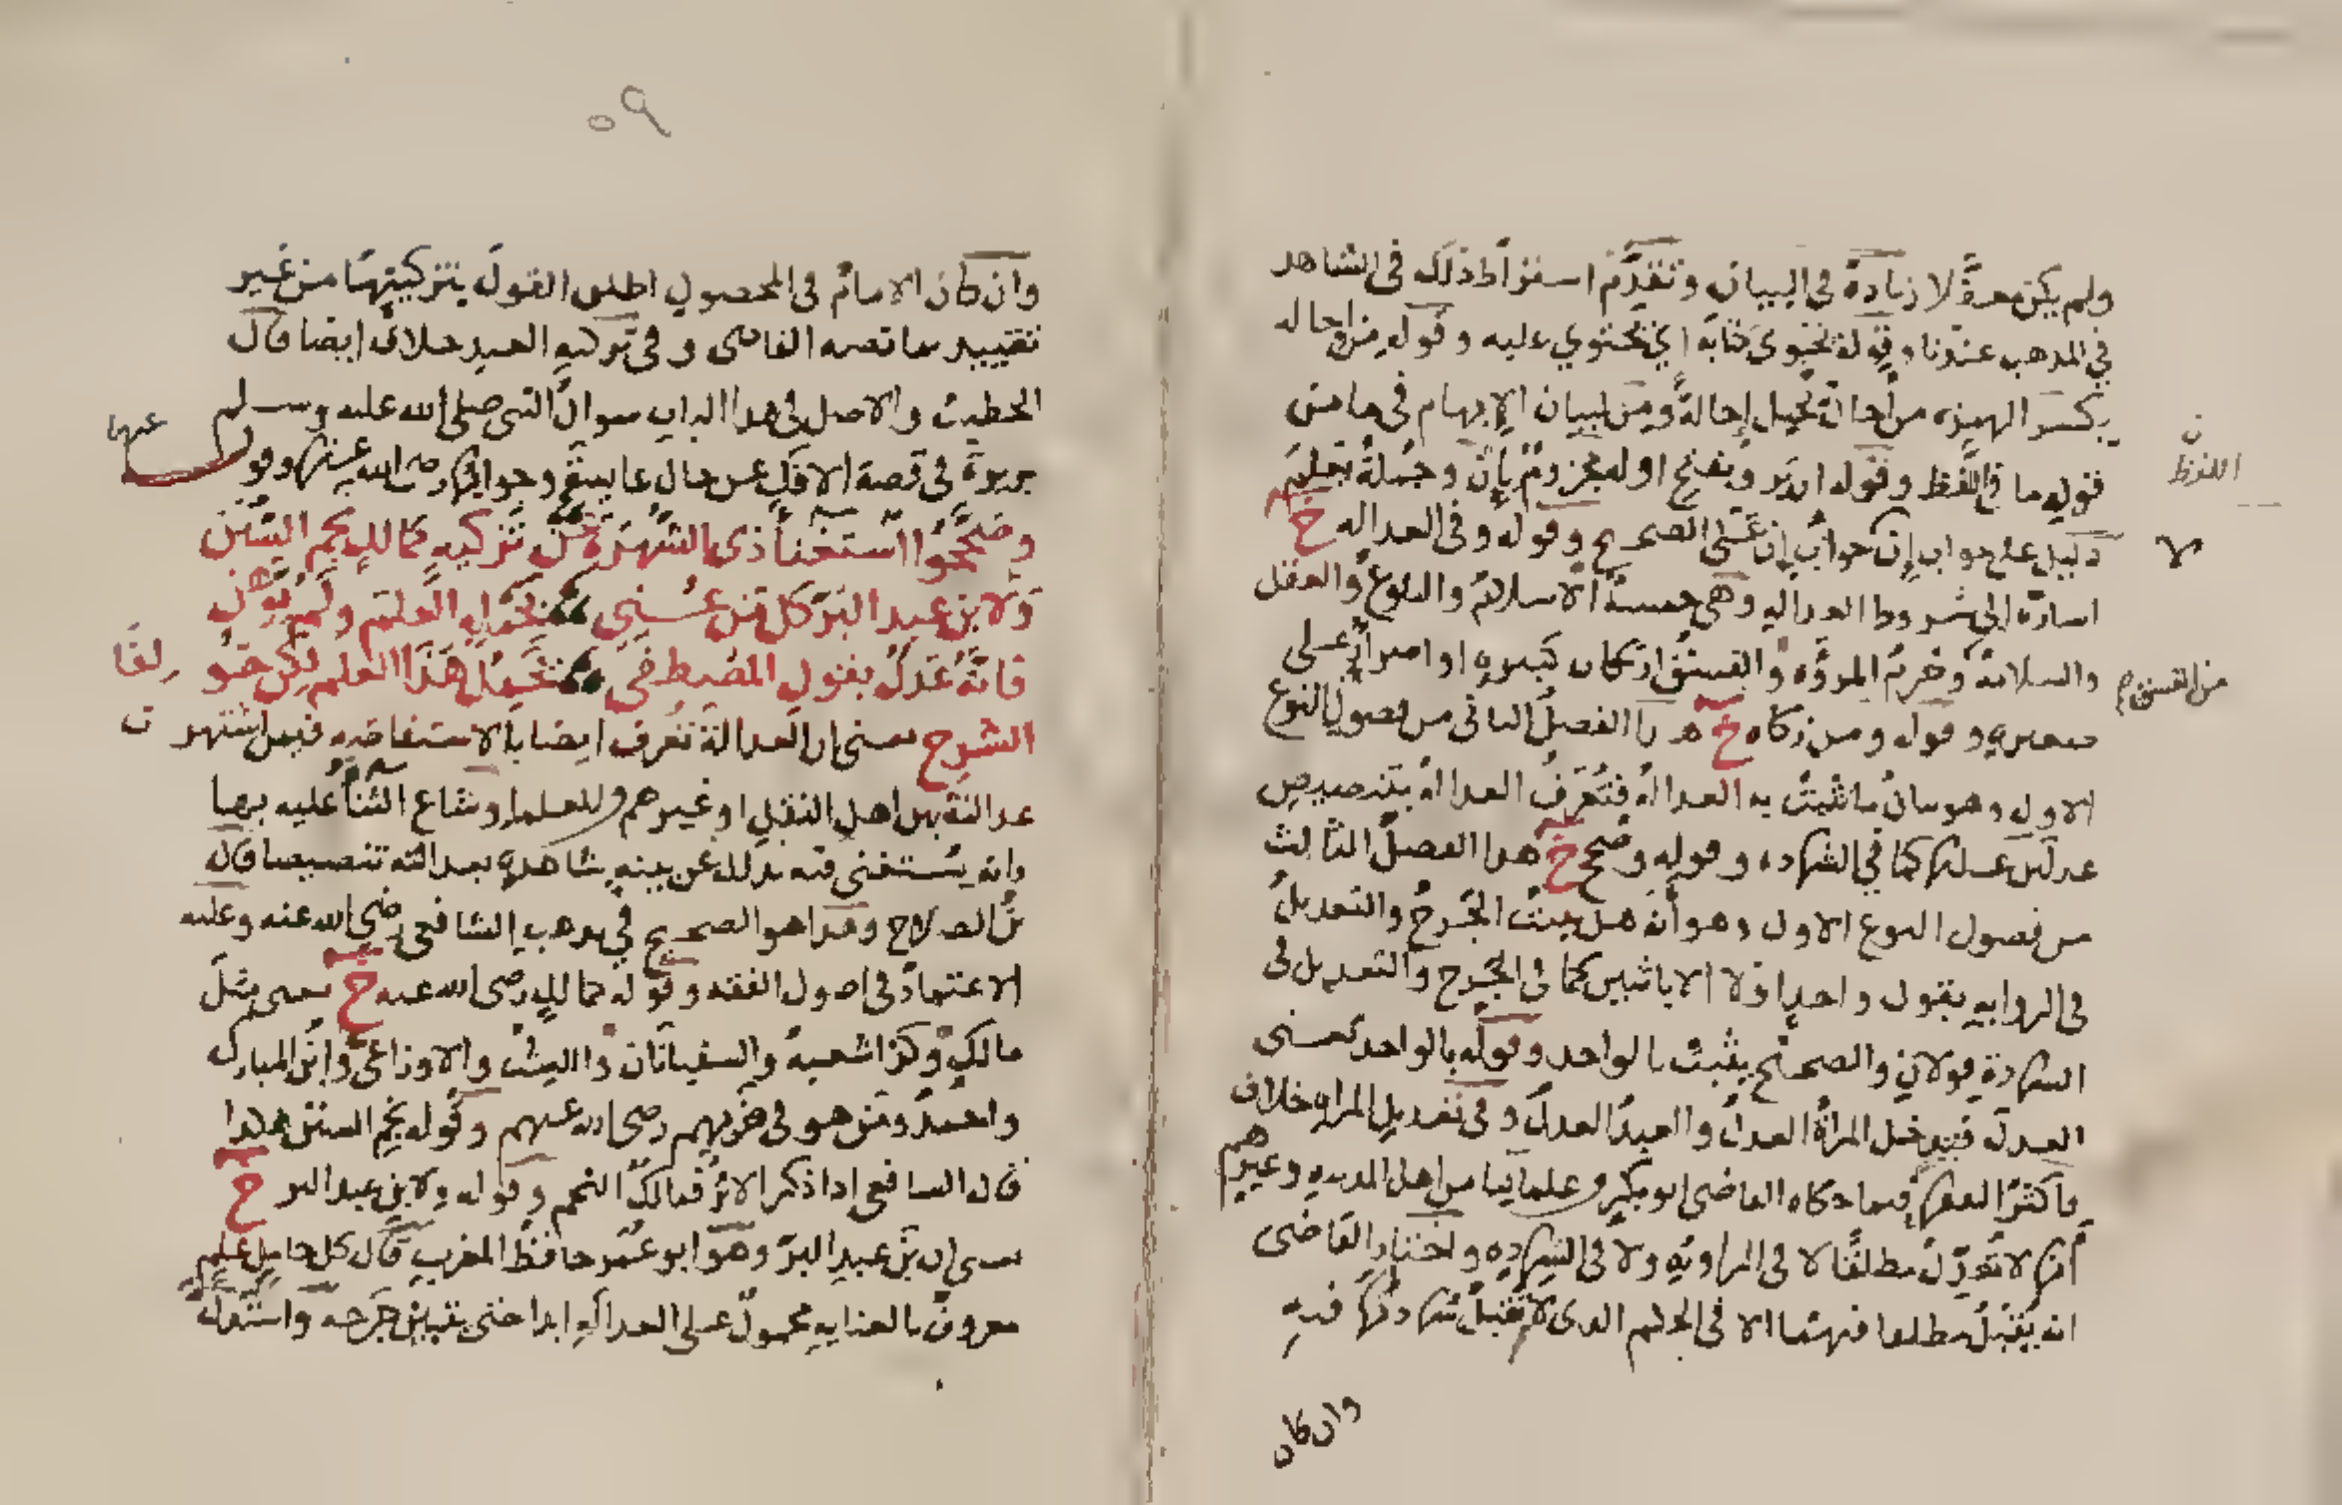 ولم يكن معرة لا زيادة في البيان وتقدم اشتراط ذلك في الشاهد
في المذهب عندنا وقوله يحتوي كتابه اي يحتوي عليه وقوله من احاله
بكسر الهمزه من احالة تحيل إحالة ومن لبيان الإبهام في ما من
قوله ما في اللفظ وقوله ان يرو بفتح اوله مجزوم بإن وجملة يعلم
دليل على جواب إن جواب إن على الصحيح وقوله وفي العداله خ
اشارة الى شروط العدالة وهي خمسة الاسلام والبلوغ والعقل
والسلامة وخرم المروه والفسق ان كان كبيرة او اصرار على
صغيرة وقوله ومن زكاه خ هذا الفصل الثاني من فصول النوع
الاول وهو بيان ما تثبت به العدالة فتعرف العدالة بتنصيص
عدلين عليها كما في الشهاده وقوله وصحح خ هذا الفصل الثالث
من فصول النوع الاول وهو أنه هل يثبت الجرح والتعديل
في الروايه بقول واحد او لا الا باثنين كما في الجرح والتعديل في
الشهادة قولان والصحيح يثبت بالواحد وقوله بالواحد يعني
العدل فيدخل المرأة العدل والعبد العدل وفي تعديل المراه خلاف
فأكثر الفقهاء فيما حكاه القاضي ابو بكر وعلمائنا من اهل المدينه وغيرهم
أنها لا تعدل مطلقا لا في الراويه ولا في الشهاده واختار القاضي
انه يقبل مطلقا فيهما الا في الحكم الذي لا تقبل شهادتها فيه
وان كان
اللفظ
لا
من الفسق م
وان كان الامام في المحصول اطلق القول بتزكيتها من غير
تقييد بما نصه القاضي وفي تزكيه العبد خلاف ايضا قال
الخطيب والاصل في هذا الباب سوال النبي صلى الله عليه وسلم
بريرة في قصة الافك عن حال عايشة وجوابها رضى الله عنها وقو
عنها
وصححوا استغنا ذي الشهرة عن تزكيه كمالك نجم السنن
ولابن عبد البر كل من عني بحمله العلم ولم يوهن
فانه عدل بقول المصطفى يحمل هذا العلم لكن خولفا
الشرح يعنى ان العدالة تعرف ايضا بالاستفاضه فمن اشتهرت
عدالته بين اهل النقل او غيرهم من العلما وشاع الثنا عليه بها
وانه يستغنى فيه بذلك عن بينه شاهدة بعدالته تنصيصا قاله
بن الصلاح وهذا هو الصحيح في مذهب الشافعي رضي الله عنه وعليه
الاعتماد في اصول الفقه وقوله كمالك رضى الله عنه خ يعنى مثل
مالك وكذا شعبة والسفيانان والليث والاوزاعي وابن المبارك
واحمد ومن هو في ضربهم رضى الله عنهم وقوله نجم السنن هذا
قاله الشافعي اذا ذكر الاثر فمالك النجم وقوله ولابن عبد البر خ
يعنى ان بن عبد البر وهو ابو عمر حافظ المغرب قال كل حامل علم
معروف بالعنايه محمول على العداله ابدا حتى يتبين جرحه واستدله